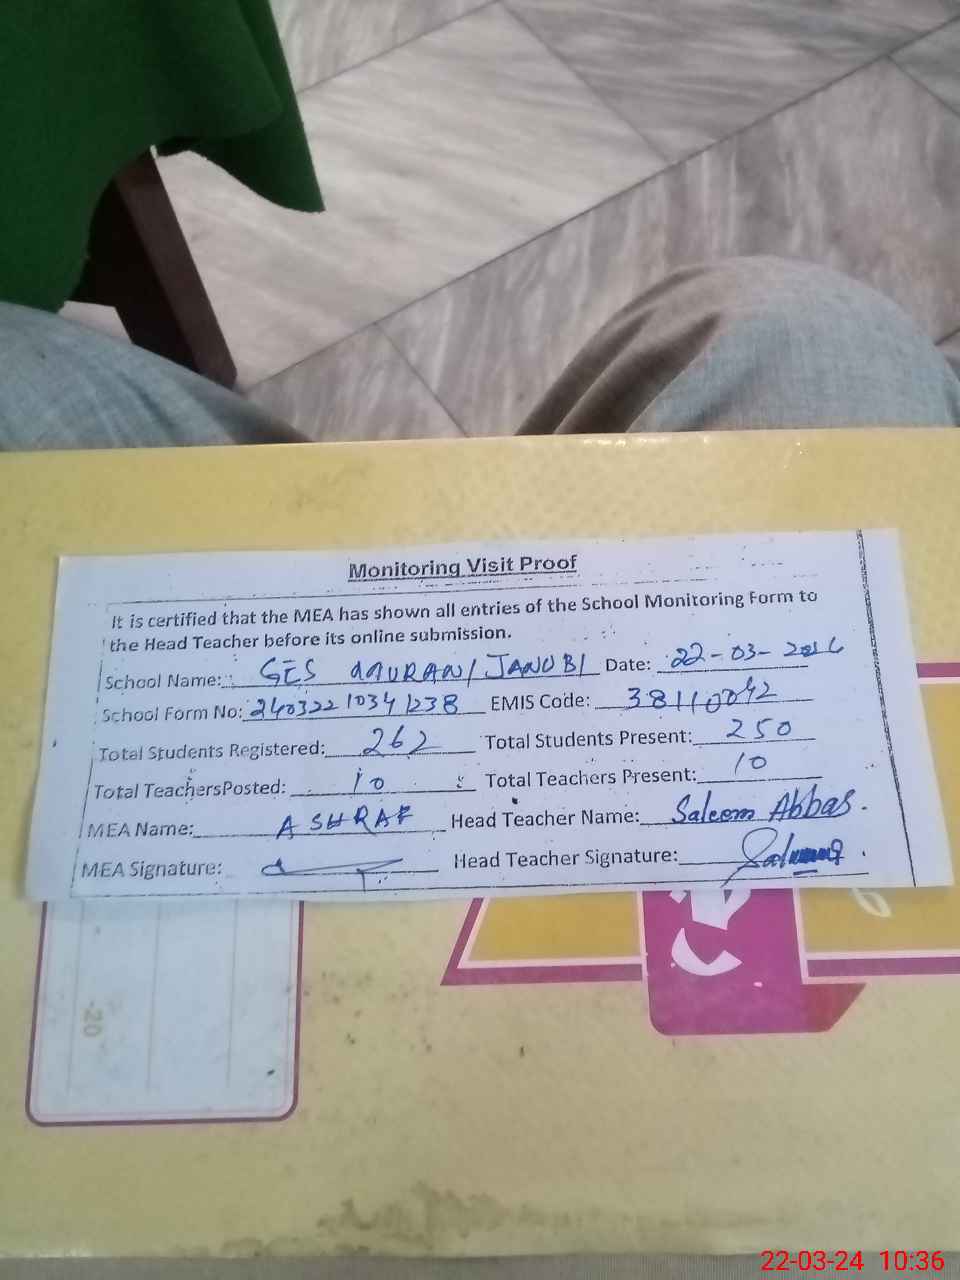 Monitoring Visit Proof
It is certified that the MEA has shown all entries of the School Monitoring Form to
the Head Teacher before its online submission.
School Name: GES JANUBI Date: 22-03-2024
School Form No: 24032210341238 EMIS Code: 38110042
Total Students Registered: 262 Total Students Present: 250
Total TeachersPosted: 10 Total Teachers Present: 10
MEA Name: ASHRAF Head Teacher Name: Saleem Abbas.
MEA Signature: Head Teacher Signature:
20
22-03-24 10:36